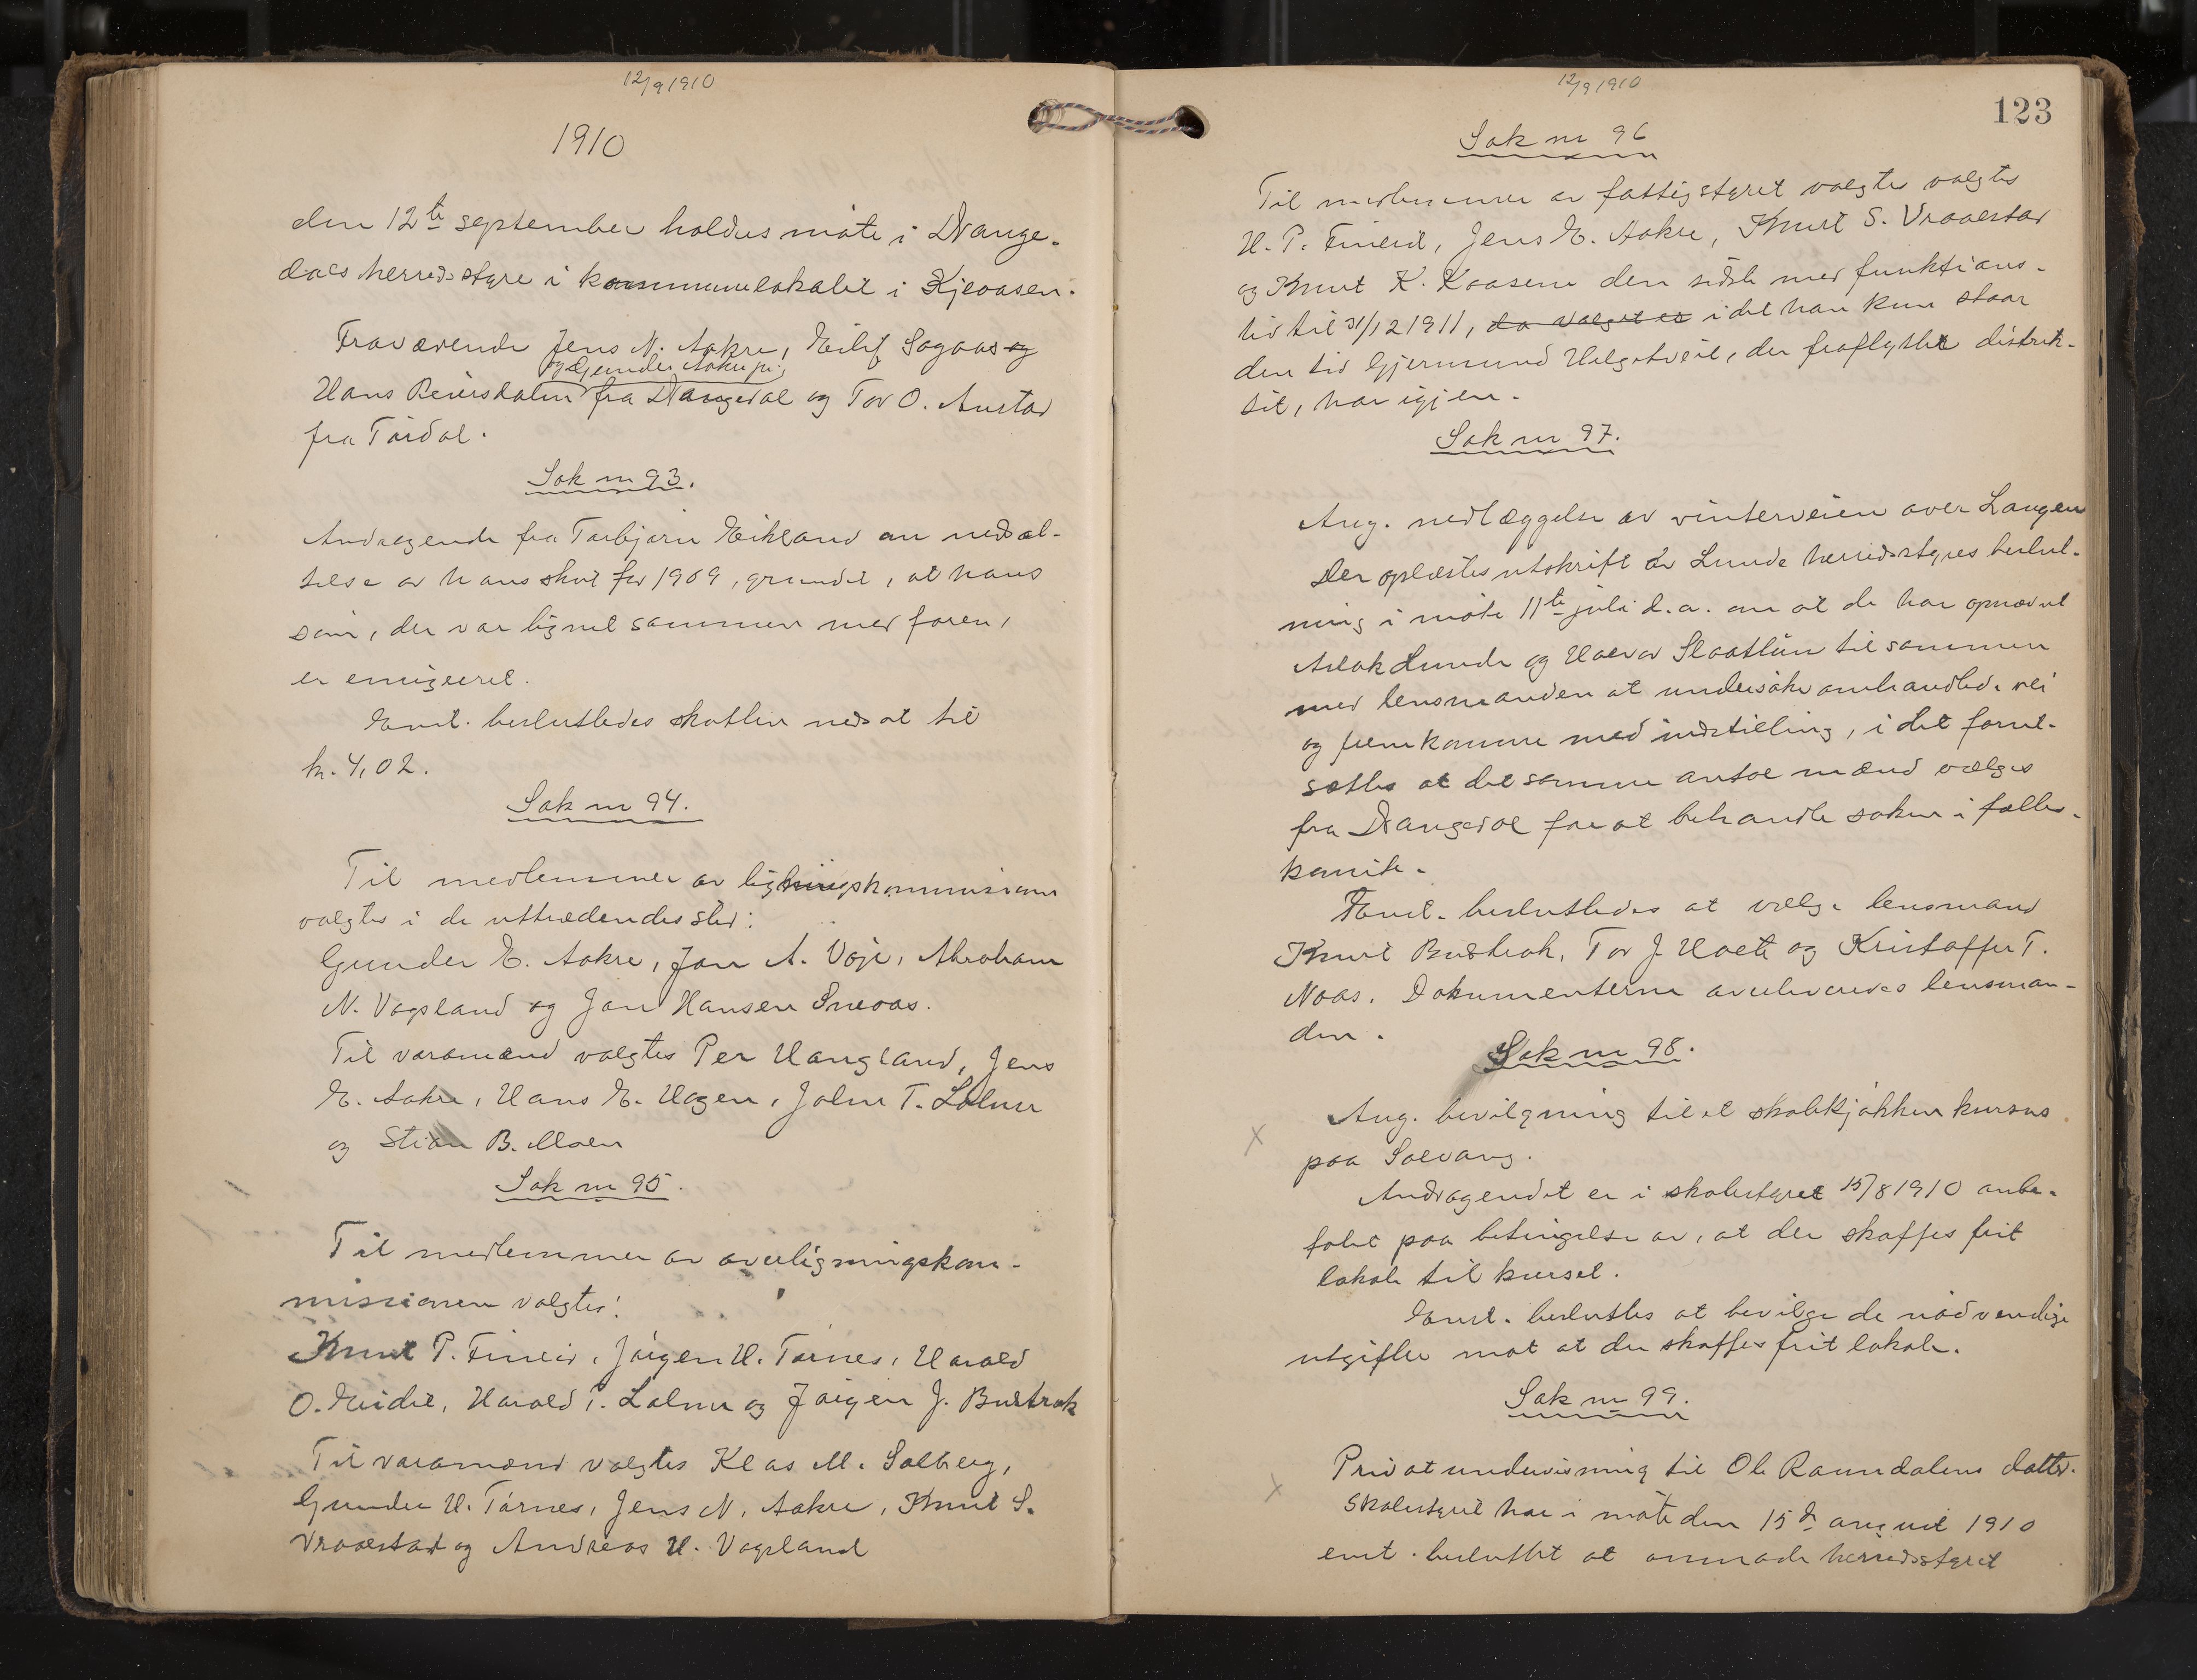 12/9 1910
1910
den 12te september holdes møte i Drange-
dals herredsstyre i kommunelokalet i Kjeaasen.
Fraværende Jens N. Aakre, Eilef Sagaas og
og Gunder Aakre jr.
Hans Reiersdalen fra Drangedal og Tov O. Austad
fra Tørdal.
Sak nr 93.
Andragende fra Torbjørn Eikland om nedsæt-
telse av hans skat for 1909, grundet, at hans
søn, der var lignet sammen med faren,
er emigreret.
Enst. besluttedes skatten nedsat til
kr. 4,02.
Sak nr 94.
Til medlemmer av ligningskommissionen
valgtes i de uttrædendes sted:
Gunder E. Aakre, Jon A. Voje, Abraham
N. Vogsland og Jon Hansen Sneaas.
Til varamænd valgtes Per Haugland, Jens
E. Aakre, Hans E. Hagen, John T. Lolnes
og Stian B. Moen
Sak nr 95.
Til medlemmer av overligningskom-
missionen valgtes:
Knut P. Fineid, Jørgen H. Tørnes, Harald
O. Heidel, Harald T. Lolnes og Jørgen J. Bustrak
Til varamænd valgtes Klas M. Solberg,
Gunder H. Tørnes, Jens N. Aakre, Knut S.
Vraalstad og Andreas H. Vogsland
12/9 1910
123
Sak nr 96
Til medlemmer av fattigstyret valgtes valgtes
H. P. Fineid, Jens E. Aakre, Knut S. Vraalstad
og Knut K. Kaasene den sidste med funktions-
tid til 31/12 1911, da valget er idet han kun staar
den tid Gjermund Helgetveit, der fraflyttet distrik-
tet, har igjen.
Sak nr 97.
Ang. nedlæggelse av vinterveien over Langen
Der oplæstes utskrift av Lunde herredsstyres beslut-
ning i møte 11te juli d.a. om at de har opnævnt
Aslak Lunde og Halvor Slaatlien til sammen
med lensmanden at undersøke omhandlede vei
og fremkomme med indstilling, i det forut-
sættes at det samme antal mænd vælges
fra Drangedal for at behandle saken i fælles-
komite.
Enst. besluttedes at vælge lensmand
Knut Bustrak, Tov J. Hoet og Kristoffer T.
Naas. Dokumenterne overleveres lensman-
den.
Sak nr 98.
Ang. bevilgning til et skolekjøkken kursus
x
paa Solvang.
Andragendet er i skolestyret 15/8 1910 anbe-
falet paa betingelse av, at der skaffes frit
lokale til kurset.
Enst. besluttes at bevilge de nødvendige
utgifter mot at der skaffes frit lokale.
Sak nr 99.
Privatundervisning til Ole Raundalens datter.
x
Skolestyret har i møte den 15de august 1910
enst. besluttet at anmode herredsstyret